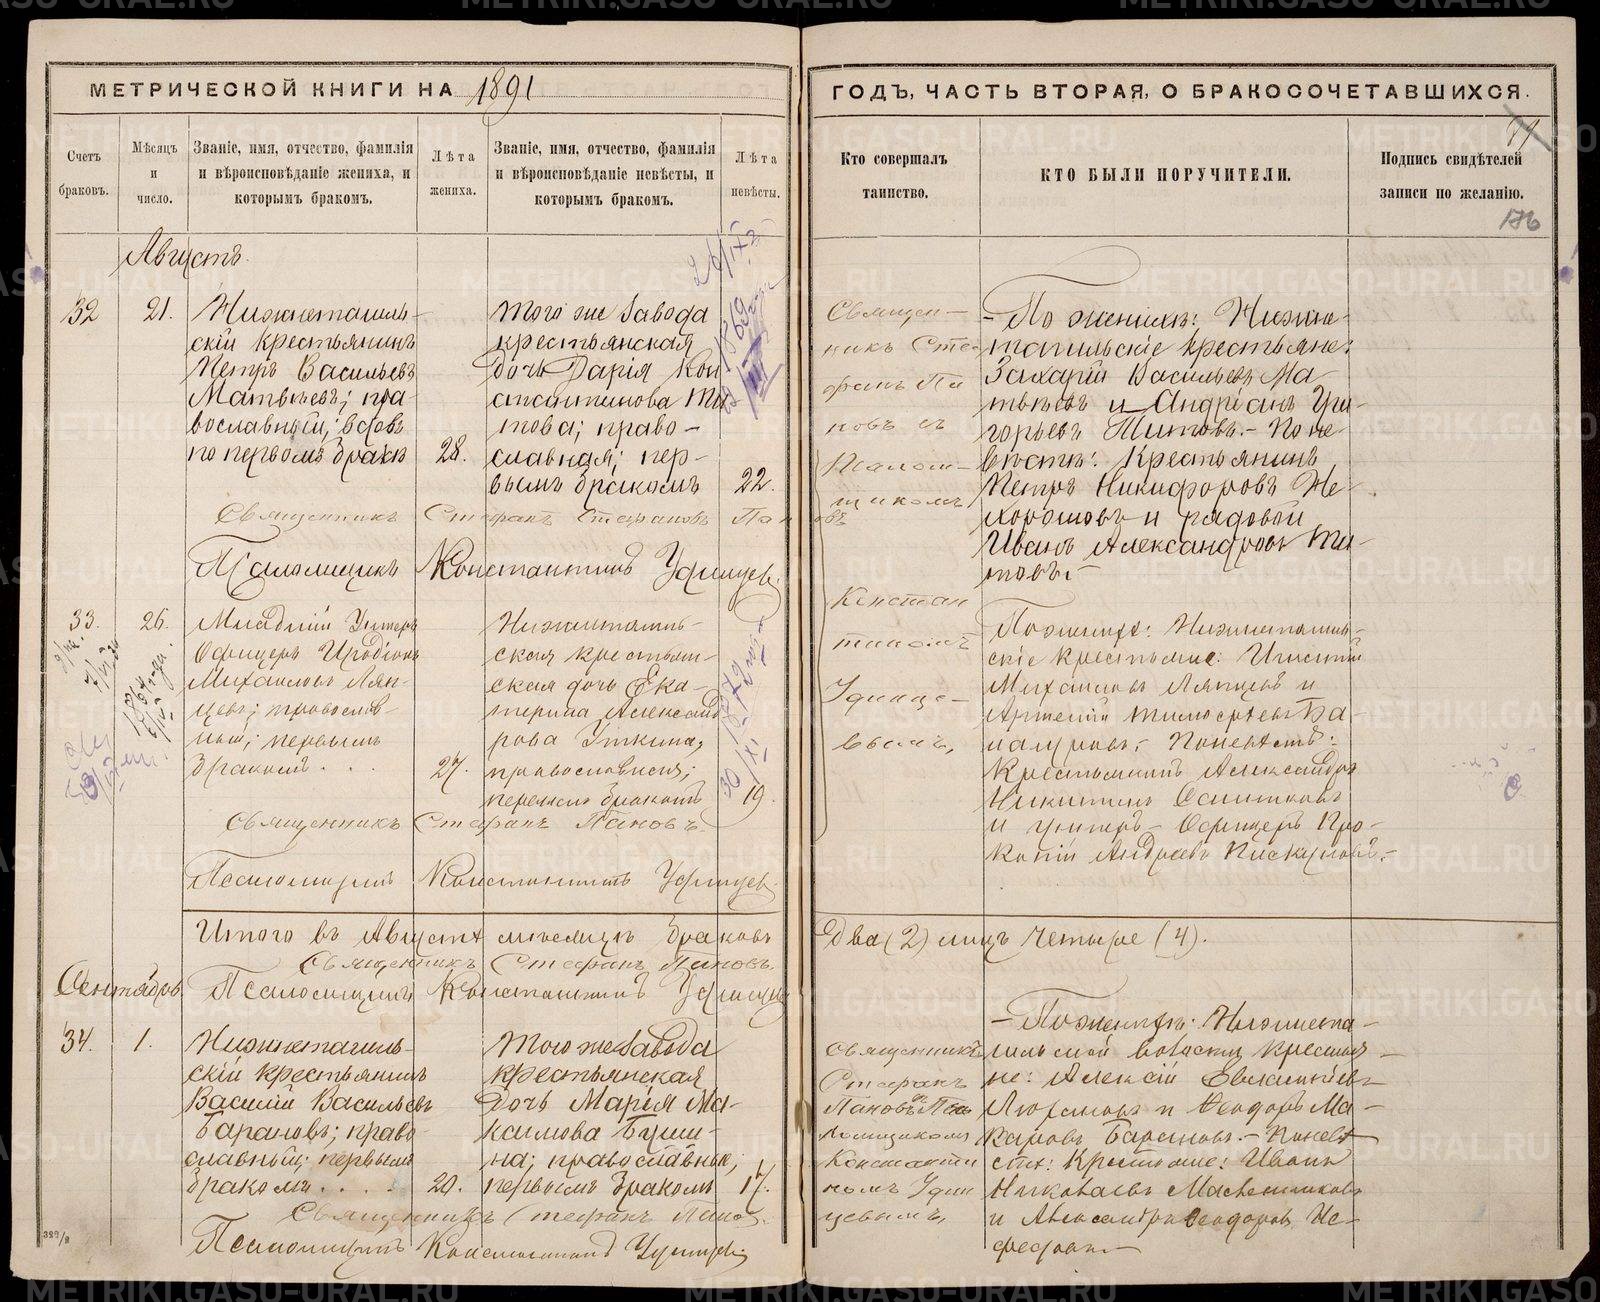 МЕТРИЧЕСКОЙ КНИГИ НА 1891
ГОДЪ, ЧАСТЬ ВТОРАЯ, О БРАКОСОЧЕТАВШИХСЯ.
Счетъ браковъ.
Мѣсяцъ и число.
Званіе, имя, отчество, фамилія и вѣроисповѣданіе жениха, и которымъ бракомъ.
Лѣта жениха.
Званіе, имя, отчество, фамилія и вѣроисповѣданіе невѣсты, и которымъ бракомъ.
Лѣта невѣсты.
Кто совершалъ таинство.
КТО БЫЛИ ПОРУЧИТЕЛИ.
Подпись свидѣтелей записи по желанію.
176
Августъ.
32
21.
Нижнетагиль-
скій крестьянинъ
Петръ Васильевъ
Матвѣевъ; пра-
вославный; вдовъ
по первомъ бракѣ
28.
Того же завода
крестьянская
дочь Дарія Кон
стантинова Ти
това; право-
славная; пер-
вымъ бракомъ
22.
Священ-
никъ Сте
фанъ Па
новъ съ
Псалом-
щикомъ
Констан
тиномъ
Удинце-
вымъ,
-По женихѣ: Нижне-
тагильскіе крестьяне:
Захарій Васильевъ Ма-
твѣевъ и Андріанъ Гри-
горьевъ Титовъ.- По не-
вѣстѣ: Крестьянинъ
Петръ Никифоровъ Не-
хорошовъ и рядовой
Иванъ Александровъ Ти-
товъ.-
Священникъ Стефанъ Стефановъ Пановъ
Псаломщикъ Константинъ Удинцевъ.
33.
26.
Младшій Унтеръ
Офицеръ Иродіонъ
Михаиловъ Ляп-
цевъ; православ-
ный; первымъ
бракомъ . . .
27.
Нижнетагиль-
ская крестьян-
ская дочь Ека-
терина Александ
рова Уткина;
православная;
первымъ бракомъ
19.
По женихѣ: Нижнетагиль-
скіе крестьяне: Игнатій
Михаиловъ Ляпцевъ и
Артемій Тимофеевъ Ба-
По невѣстѣ:
Крестьянинъ Александръ
Никитинъ
и унтеръ-Офицеръ Про-
копій Андреевъ Пискуновъ.-
Священникъ Стефанъ Пановъ.
Псаломщикъ Константинъ Удинцевъ.
Итого въ Августѣ мѣсяцѣ браковъ
Два (2) лицъ четыре (4).
Священникъ Стефанъ Пановъ.
Псаломщикъ Константинъ Удинцевъ
Сентябрь.
34.
1.
Нижнетагиль-
скій крестьянинъ
Василій Васильевъ
Барановъ; право-
славный; первымъ
бракомъ . . . .
20.
Того же завода
крестьянская
дочь Марія Ма-
ксимова Буши-
на; православная;
первымъ бракомъ
17.
Священникъ
Стефанъ
Пановъ съ Пса
ломщикомъ
Константи
номъ Удин
цевымъ,
-По женихѣ: Нижнета-
гильской волости крестья-
не: Алексій
и Феодоръ Ма-
каровъ Барановъ.- По невѣ
стѣ: Крестьяне: Иванъ
Николаевъ Масленниковъ
и Александръ Феодоровъ
Священникъ Стефанъ Пановъ.
Псаломщикъ Константинъ Удинцевъ
METRIKI.GASO-URAL.RU